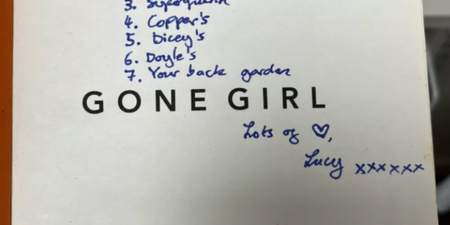 3. Superquinn
4. Copper's
5. Dicey's
6. Doyle's
7. Your back garden
GONE GIRL
Lots of ♡,
Lucy xxxxxx